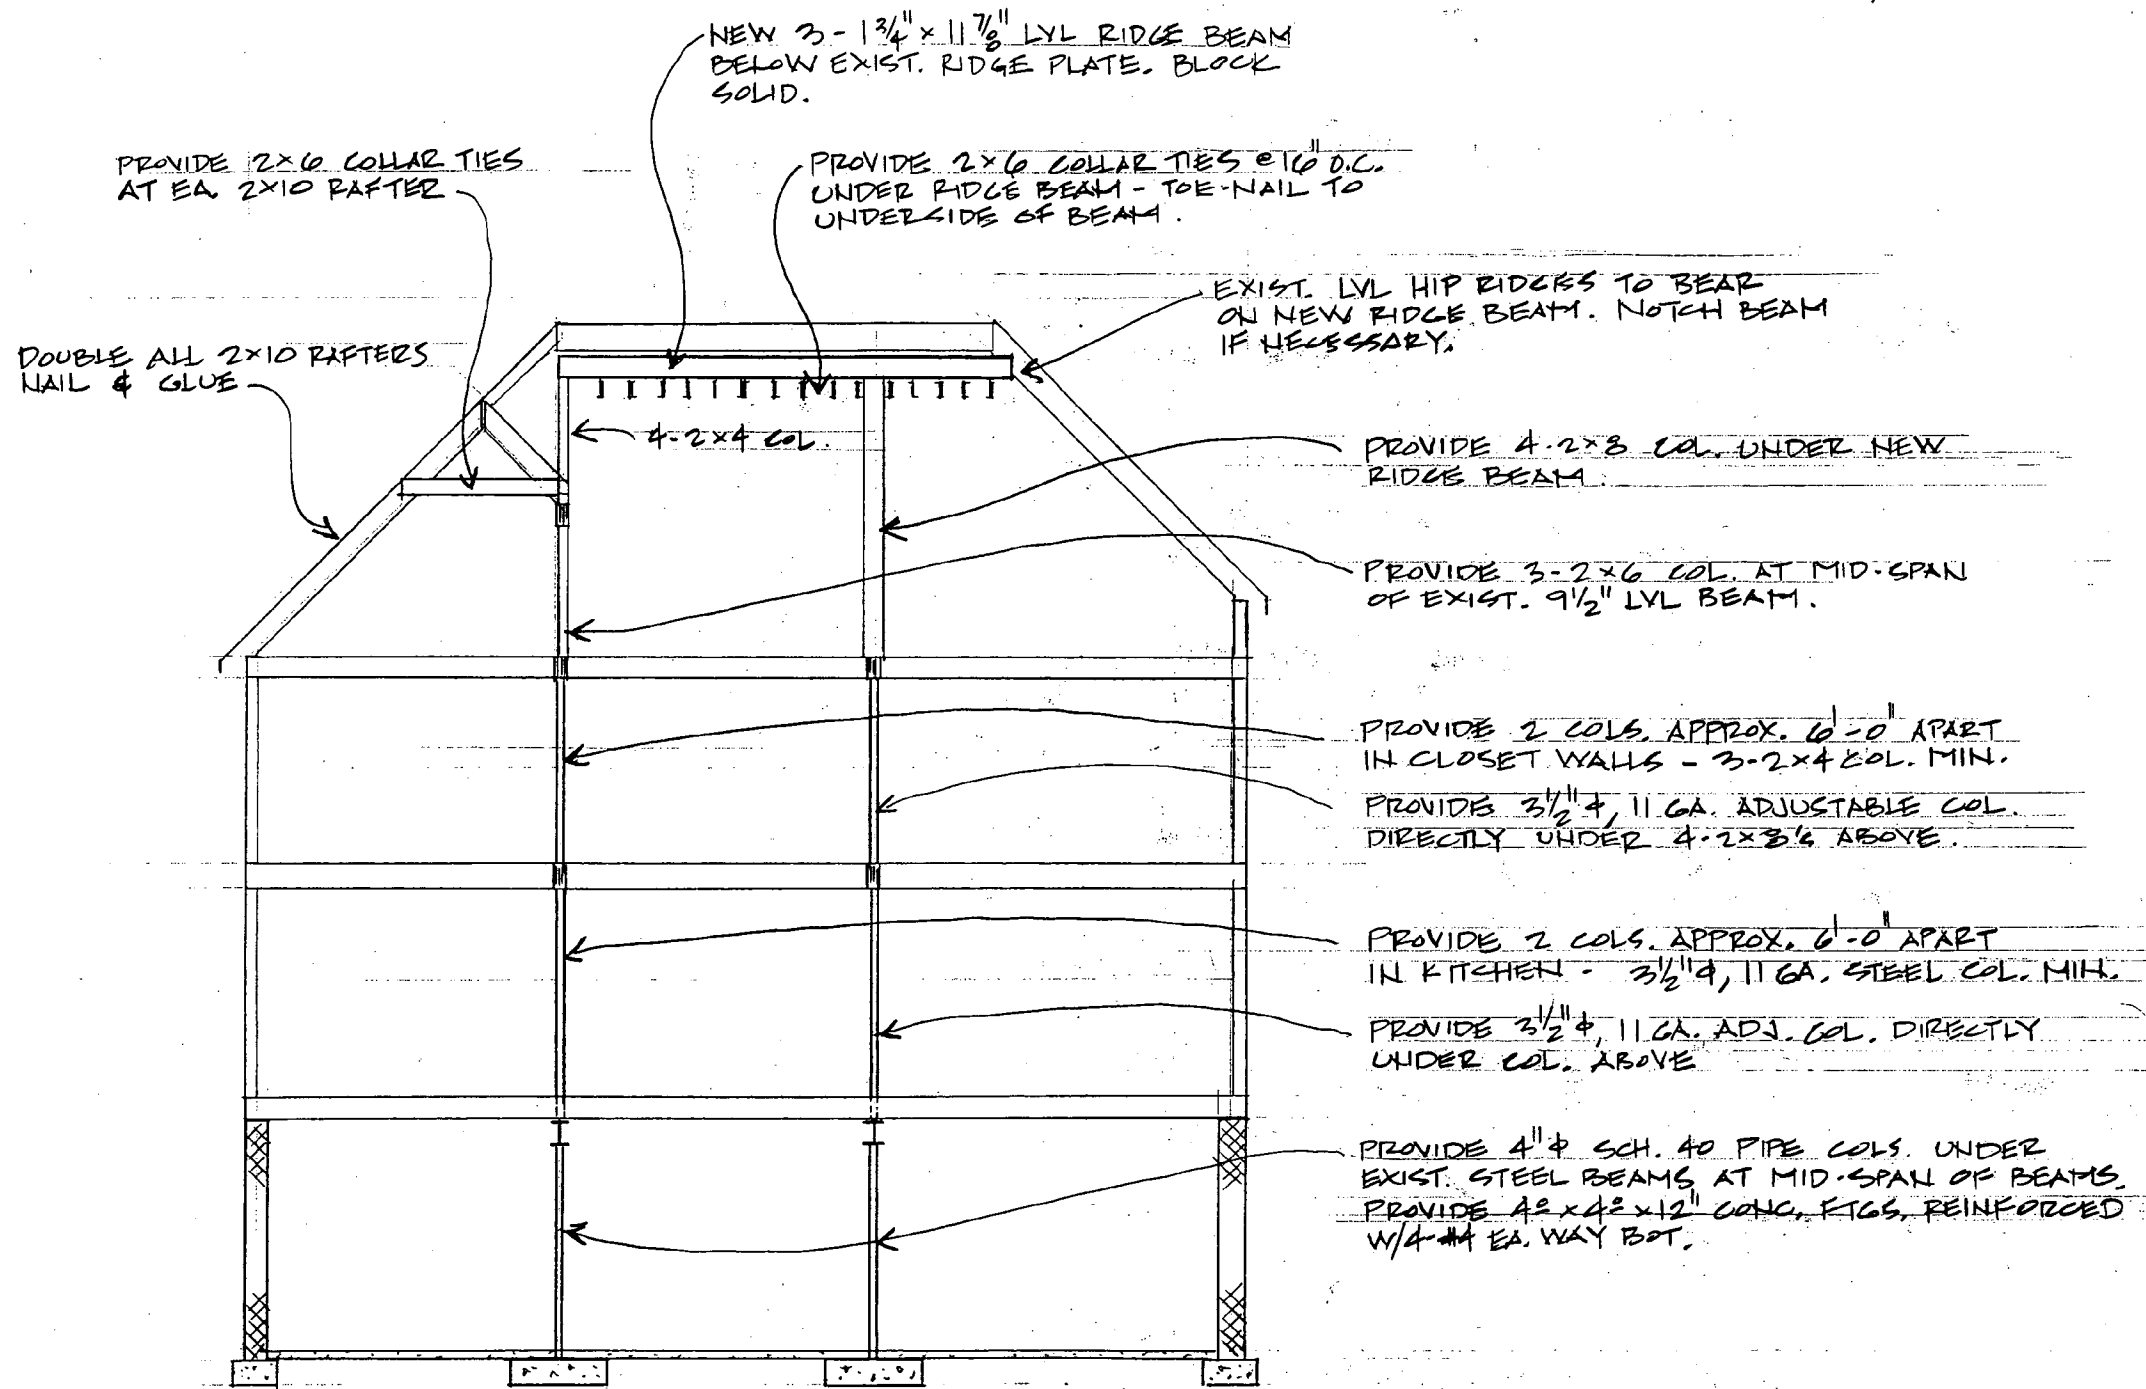 NEW 3-1 3/4" x 11 7/8" LVL RIDGE BEAM
BELOW EXIST. RIDGE PLATE. BLOCK
SOLID.
PROVIDE 2x6 COLLAR TIES
AT EA. 2x10 RAFTER
PROVIDE 2x6 COLLAR TIES @ 16" O.C.
UNDER RIDGE BEAM - TOE-NAIL TO
UNDERSIDE OF BEAM.
EXIST. LVL HIP RIDGES TO BEAR
ON NEW RIDGE BEAM. NOTCH BEAM
IF NECESSARY.
DOUBLE ALL 2x10 RAFTERS
NAIL & GLUE
4-2x4 COL.
PROVIDE 4-2x8 COL. UNDER NEW
RIDGE BEAM.
PROVIDE 3-2x6 COL. AT MID-SPAN
OF EXIST. 9 1/2" LVL BEAM.
PROVIDE 2 COLS. APPROX. 6'-0" APART
IN CLOSET WALLS - 3-2x4 COL. MIN.
PROVIDE 3 1/2" ϕ, 11 GA. ADJUSTABLE COL.
DIRECTLY UNDER 4-2x8's ABOVE.
PROVIDE 2 COLS. APPROX. 6'-0" APART
IN KITCHEN - 3 1/2" ϕ, 11 GA. STEEL COL. MIN.
PROVIDE 3 1/2" ϕ, 11 GA. ADJ. COL. DIRECTLY
UNDER COL. ABOVE
PROVIDE 4" ϕ SCH. 40 PIPE COLS. UNDER
EXIST. STEEL BEAMS AT MID-SPAN OF BEAMS.
PROVIDE 4⁰ x 4⁰ x 12" CONC. FTGS. REINFORCED
W/4-#4 EA. WAY BOT.